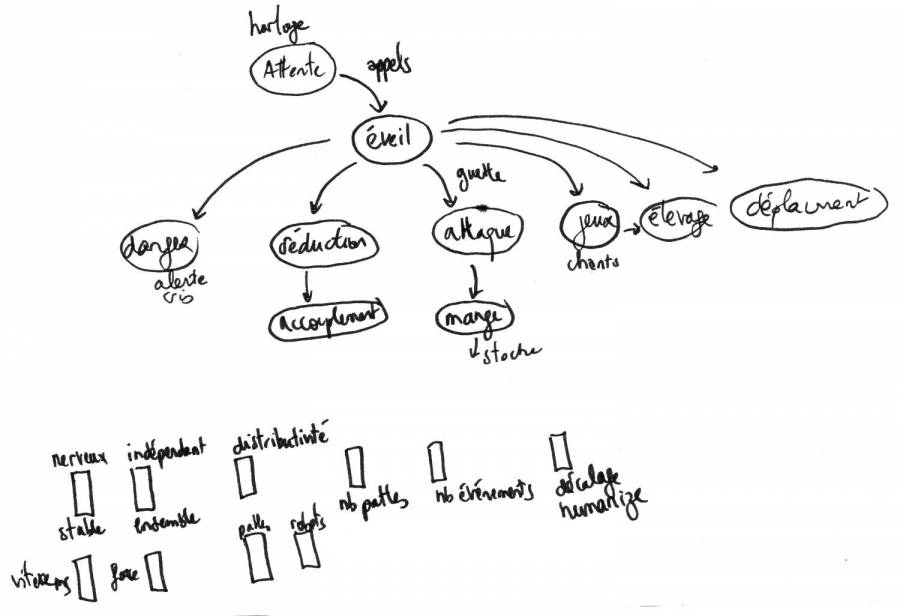 horloge
Attente
appels
éveil
guette
danger
séduction
attaque
jeux
élevage
déplacment
alerte
cris
chants
accouplement
mange
stocke
nerveux
indépendant
distributivité
stable
ensemble
nb pattes
nb événements
décalage
humanize
pattes
robots
vitesse
force